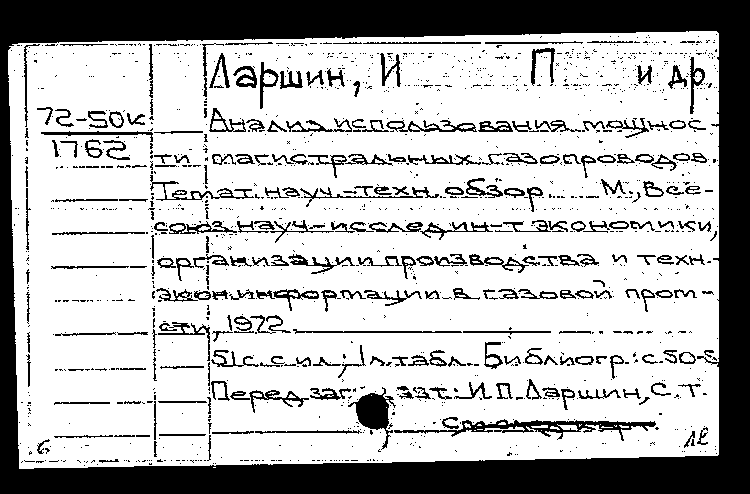 Ларшин, И П и др.
72-50к
1762
Анализ использования мощнос-
ти магистральных газопроводов.
Темат. науч.-техн. обзор. М., Все-
союз. науч.-исслед. ин-т экономики,
организации производства и техн.-
экон. информации в газовой пром-
сти, 1972.
51 с. с ил.; 1 л. табл. Библиогр.: с. 50-5
Перед заг. авт.: И.П. Ларшин, С.Т.
См след карт.
.6